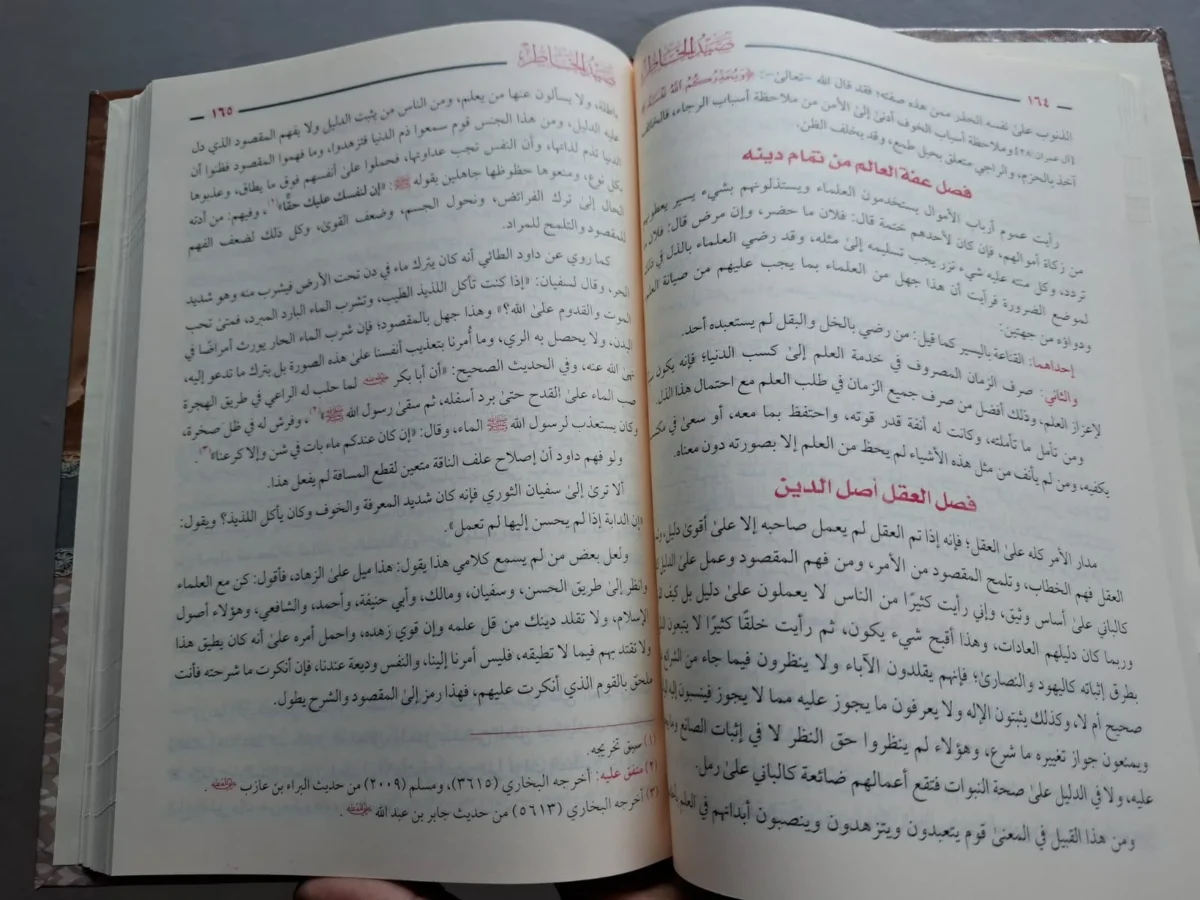 صيد الخاطر
١٦٤
الذنوب علىٰ نفسه الحذر ممن هذه صفته؛ فقد قال الله -تعالىٰ-: ﴿ويحذركم الله نفسه
[آل عمران:٢٨] وملاحظة أسباب الخوف أدنىٰ إلىٰ الأمن من ملاحظة أسباب الرجاء، فالخائف
آخذ بالحزم، والراجي متعلق بحبل طمع، وقد يخلف الظن.
فصل عفة العالم من تمام دينه
رأيت عموم أرباب الأموال يستخدمون العلماء ويستذلونهم بشيء يسير يعطونهم
من زكاة أموالهم، فإن كان لأحدهم ختمة قال: فلان ما حضر، وإن مرض قال: فلان ما
تردد، وكل منته عليه شيء نزر يجب تسليمه إلىٰ مثله، وقد رضي العلماء بالذل في ذلك
لموضع الضرورة فرأيت أن هذا جهل من العلماء بما يجب عليهم من صيانة العلم
ودواؤه من جهتين:
إحداهما: القناعة باليسير كما قيل: من رضي بالخل والبقل لم يستعبده أحد.
والثاني: صرف الزمان المصروف في خدمة العلم إلىٰ كسب الدنيا؛ فإنه يكون
لإعزاز العلم، وذلك أفضل من صرف جميع الزمان في طلب العلم مع احتمال هذا الذل.
ومن تأمل ما تأملته، وكانت له أنفة قدر قوته، واحتفظ بما معه، أو سعىٰ في
يكفيه، ومن لم يأنف من مثل هذه الأشياء لم يحظ من العلم إلا بصورته دون معناه.
فصل العقل أصل الدين
مدار الأمر كله علىٰ العقل؛ فإنه إذا تم العقل لم يعمل صاحبه إلا علىٰ أقوىٰ دليل،
العقل فهم الخطاب، وتلمح المقصود من الأمر، ومن فهم المقصود وعمل علىٰ الدليل
كالباني علىٰ أساس وثيق، وإني رأيت كثيرًا من الناس لا يعملون علىٰ دليل بل كيف
وربما كان دليلهم العادات، وهذا أقبح شيء يكون، ثم رأيت خلقًا كثيرًا لا يتبعون
بطرق إثباته كاليهود والنصارىٰ؛ فإنهم يقلدون الآباء ولا ينظرون فيما جاء من الشرائع
صحيح أم لا، وكذلك يثبتون الإله ولا يعرفون ما يجوز عليه مما لا يجوز فينسبون إليه
ويمنعون جواز تغييره ما شرع، وهؤلاء لم ينظروا حق النظر لا في إثبات الصانع وما
عليه، ولا في الدليل علىٰ صحة النبوات فتقع أعمالهم ضائعة كالباني علىٰ رمل.
ومن هذا القبيل في المعنىٰ قوم يتعبدون ويتزهدون وينصبون أبدانهم في العلم
صيد الخاطر
١٦٥
باطلة، ولا يسألون عنها من يعلم، ومن الناس من يثبت الدليل ولا يفهم المقصود الذي دل
عليه الدليل، ومن هذا الجنس قوم سمعوا ذم الدنيا فتزهدوا، وما فهموا المقصود فظنوا أن
الدنيا تذم لذاتها، وأن النفس تجب عداوتها، فحملوا علىٰ أنفسهم فوق ما يطاق، وعذبوها
بكل نوع، ومنعوها حظوظها جاهلين بقوله ﷺ: «إن لنفسك عليك حقًّا»(١)، وفيهم: من أدته
الحال إلىٰ ترك الفرائض، ونحول الجسم، وضعف القوىٰ، وكل ذلك لضعف الفهم
للمقصود والتلمح للمراد.
كما روي عن داود الطائي أنه كان يترك ماء في دن تحت الأرض فيشرب منه وهو شديد
الحر، وقال لسفيان: «إذا كنت تأكل اللذيذ الطيب، وتشرب الماء البارد المبرد، فمتىٰ تحب
الموت والقدوم علىٰ الله؟» وهذا جهل بالمقصود؛ فإن شرب الماء الحار يورث أمراضًا في
البدن، ولا يحصل به الري، وما أُمرنا بتعذيب أنفسنا علىٰ هذه الصورة بل بترك ما تدعو إليه،
نهىٰ الله عنه، وفي الحديث الصحيح: «أن أبا بكر رضي الله عنه لما حلب له الراعي في طريق الهجرة
صب الماء علىٰ القدح حتىٰ برد أسفله، ثم سقىٰ رسول الله ﷺ»(٢)، وفرش له في ظل صخرة،
وكان يستعذب لرسول الله ﷺ الماء، وقال: «إن كان عندكم ماء بات في شن وإلا كرعنا»(٣).
ولو فهم داود أن إصلاح علف الناقة متعين لقطع المسافة لم يفعل هذا.
ألا ترىٰ إلىٰ سفيان الثوري فإنه كان شديد المعرفة والخوف وكان يأكل اللذيذ؟ ويقول:
«إن الدابة إذا لم يحسن إليها لم تعمل».
ولعل بعض من لم يسمع كلامي هذا يقول: هذا ميل علىٰ الزهاد، فأقول: كن مع العلماء
وانظر إلىٰ طريق الحسن، وسفيان، ومالك، وأبي حنيفة، وأحمد، والشافعي، وهؤلاء أصول
الإسلام، ولا تقلد دينك من قل علمه وإن قوي زهده، واحمل أمره علىٰ أنه كان يطيق هذا
ولا تقتد بهم فيما لا تطيقه، فليس أمرنا إلينا، والنفس وديعة عندنا، فإن أنكرت ما شرحته فأنت
ملحق بالقوم الذي أنكرت عليهم، فهذا رمز إلىٰ المقصود والشرح يطول.
(١) سبق تخريجه.
(٢) متفق عليه: أخرجه البخاري (٣٦١٥)، ومسلم (٢٠٠٩) من حديث البراء بن عازب رضي الله عنه.
(٣) أخرجه البخاري (٥٦١٣) من حديث جابر بن عبد الله رضي الله عنه.